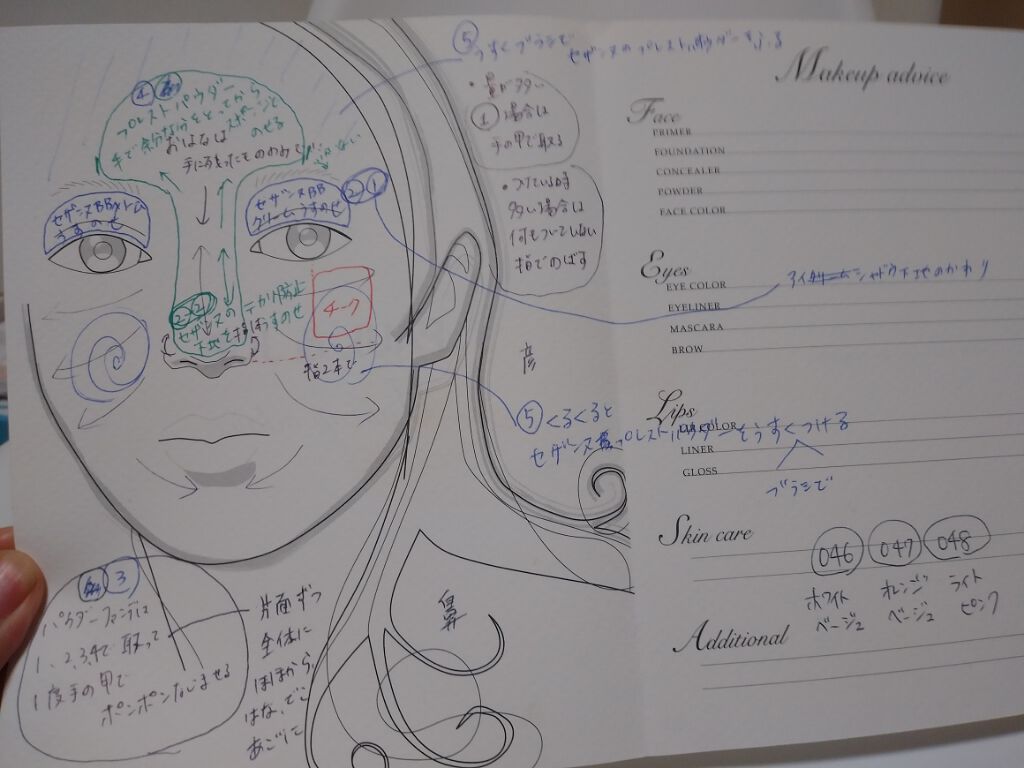 ⑤うすくブラシで
セザンヌのプレストパウダーをふる
プレストパウダー
手で余分な粉をとってから
スポンジで
のせる
おはなは
手に
・量が多い
①場合は
手の甲で取る
・つけている時
多い場合は
何もついていない
指でのばす
セザンヌBBクリーム
うすくのせ
セザンヌBB
クリームうすくのせ
②①
チーク
セザンヌの
テカリ防止
下地を指
うすくのせ
指2本で
彦
⑤くるくると
セザンヌ プレストパウダーをうすくつける
ブラシで
③
パウダーファンデは
1、2、3、4で取って
1度手の甲で
ポンポンなじませる
片面ずつ
全体に
ほほから、
はな、でこ
あごに
鼻
Makeup advice
Face
PRIMER
FOUNDATION
CONCEALER
POWDER
FACE COLOR
Eyes
EYE COLOR
下地のかわり
EYELINER
MASCARA
BROW
Lips
LIP COLOR
LINER
GLOSS
Skin care
046 047 048
ホワイト オレンジ ライト
ベージュ ベージュ ピンク
Additional